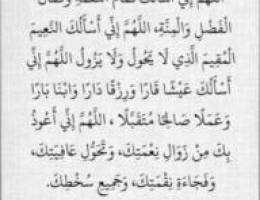 الْفَضْلِ وَالْمِنَّةِ، اللَّهُمَّ إِنِّي أَسْأَلُكَ النَّعِيمَ
الْمُقِيمَ الَّذِي لَا يَحُولُ وَلَا يَزُولُ اللَّهُمَّ إِنِّي
أَسْأَلُكَ عَيْشًا قَارًّا وَرِزْقًا دَارًّا وَابْنَا بَارًّا
وَعَمَلًا صَالِحًا مُتَقَبَّلًا ، اللَّهُمَّ إِنِّي أَعُوذُ
بِكَ مِنْ زَوَالِ نِعْمَتِكَ، وَتَحَوُّلِ عَافِيَتِكَ،
وَفَجَاءَةِ نِقْمَتِكَ، وَجَمِيعِ سُخْطِكَ.